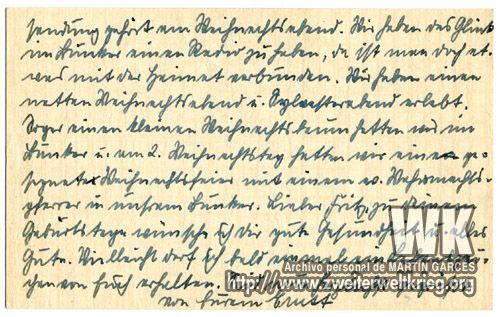 sendung gehört am Weihnachtsabend. Wir haben das Glück
im Bunker einen Radio zu haben, da ist man doch et-
was mit der Heimat verbunden. Wir haben einen
netten Weihnachtsabend u. Sylvesterabend erlebt.
Sogar einen kleinen Weihnachtsbaum hatten wir im
Bunker u. am 2. Weihnachtstag hatten wir eine
Weihnachtsfeier mit einem ev. Wehrmachts-
pfarrer in unsrem Bunker. Lieber Fritz, zu Deinem
Geburtstage wünsche ich dir gute Gesundheit u. alles
Gute. Vielleicht darf ich bald einmal ein
chen von Euch erhalten.
von Eurem Ernst
WK
Archivo personal de MARTÍN GARCES
http://www.zweiterweltkrieg.org